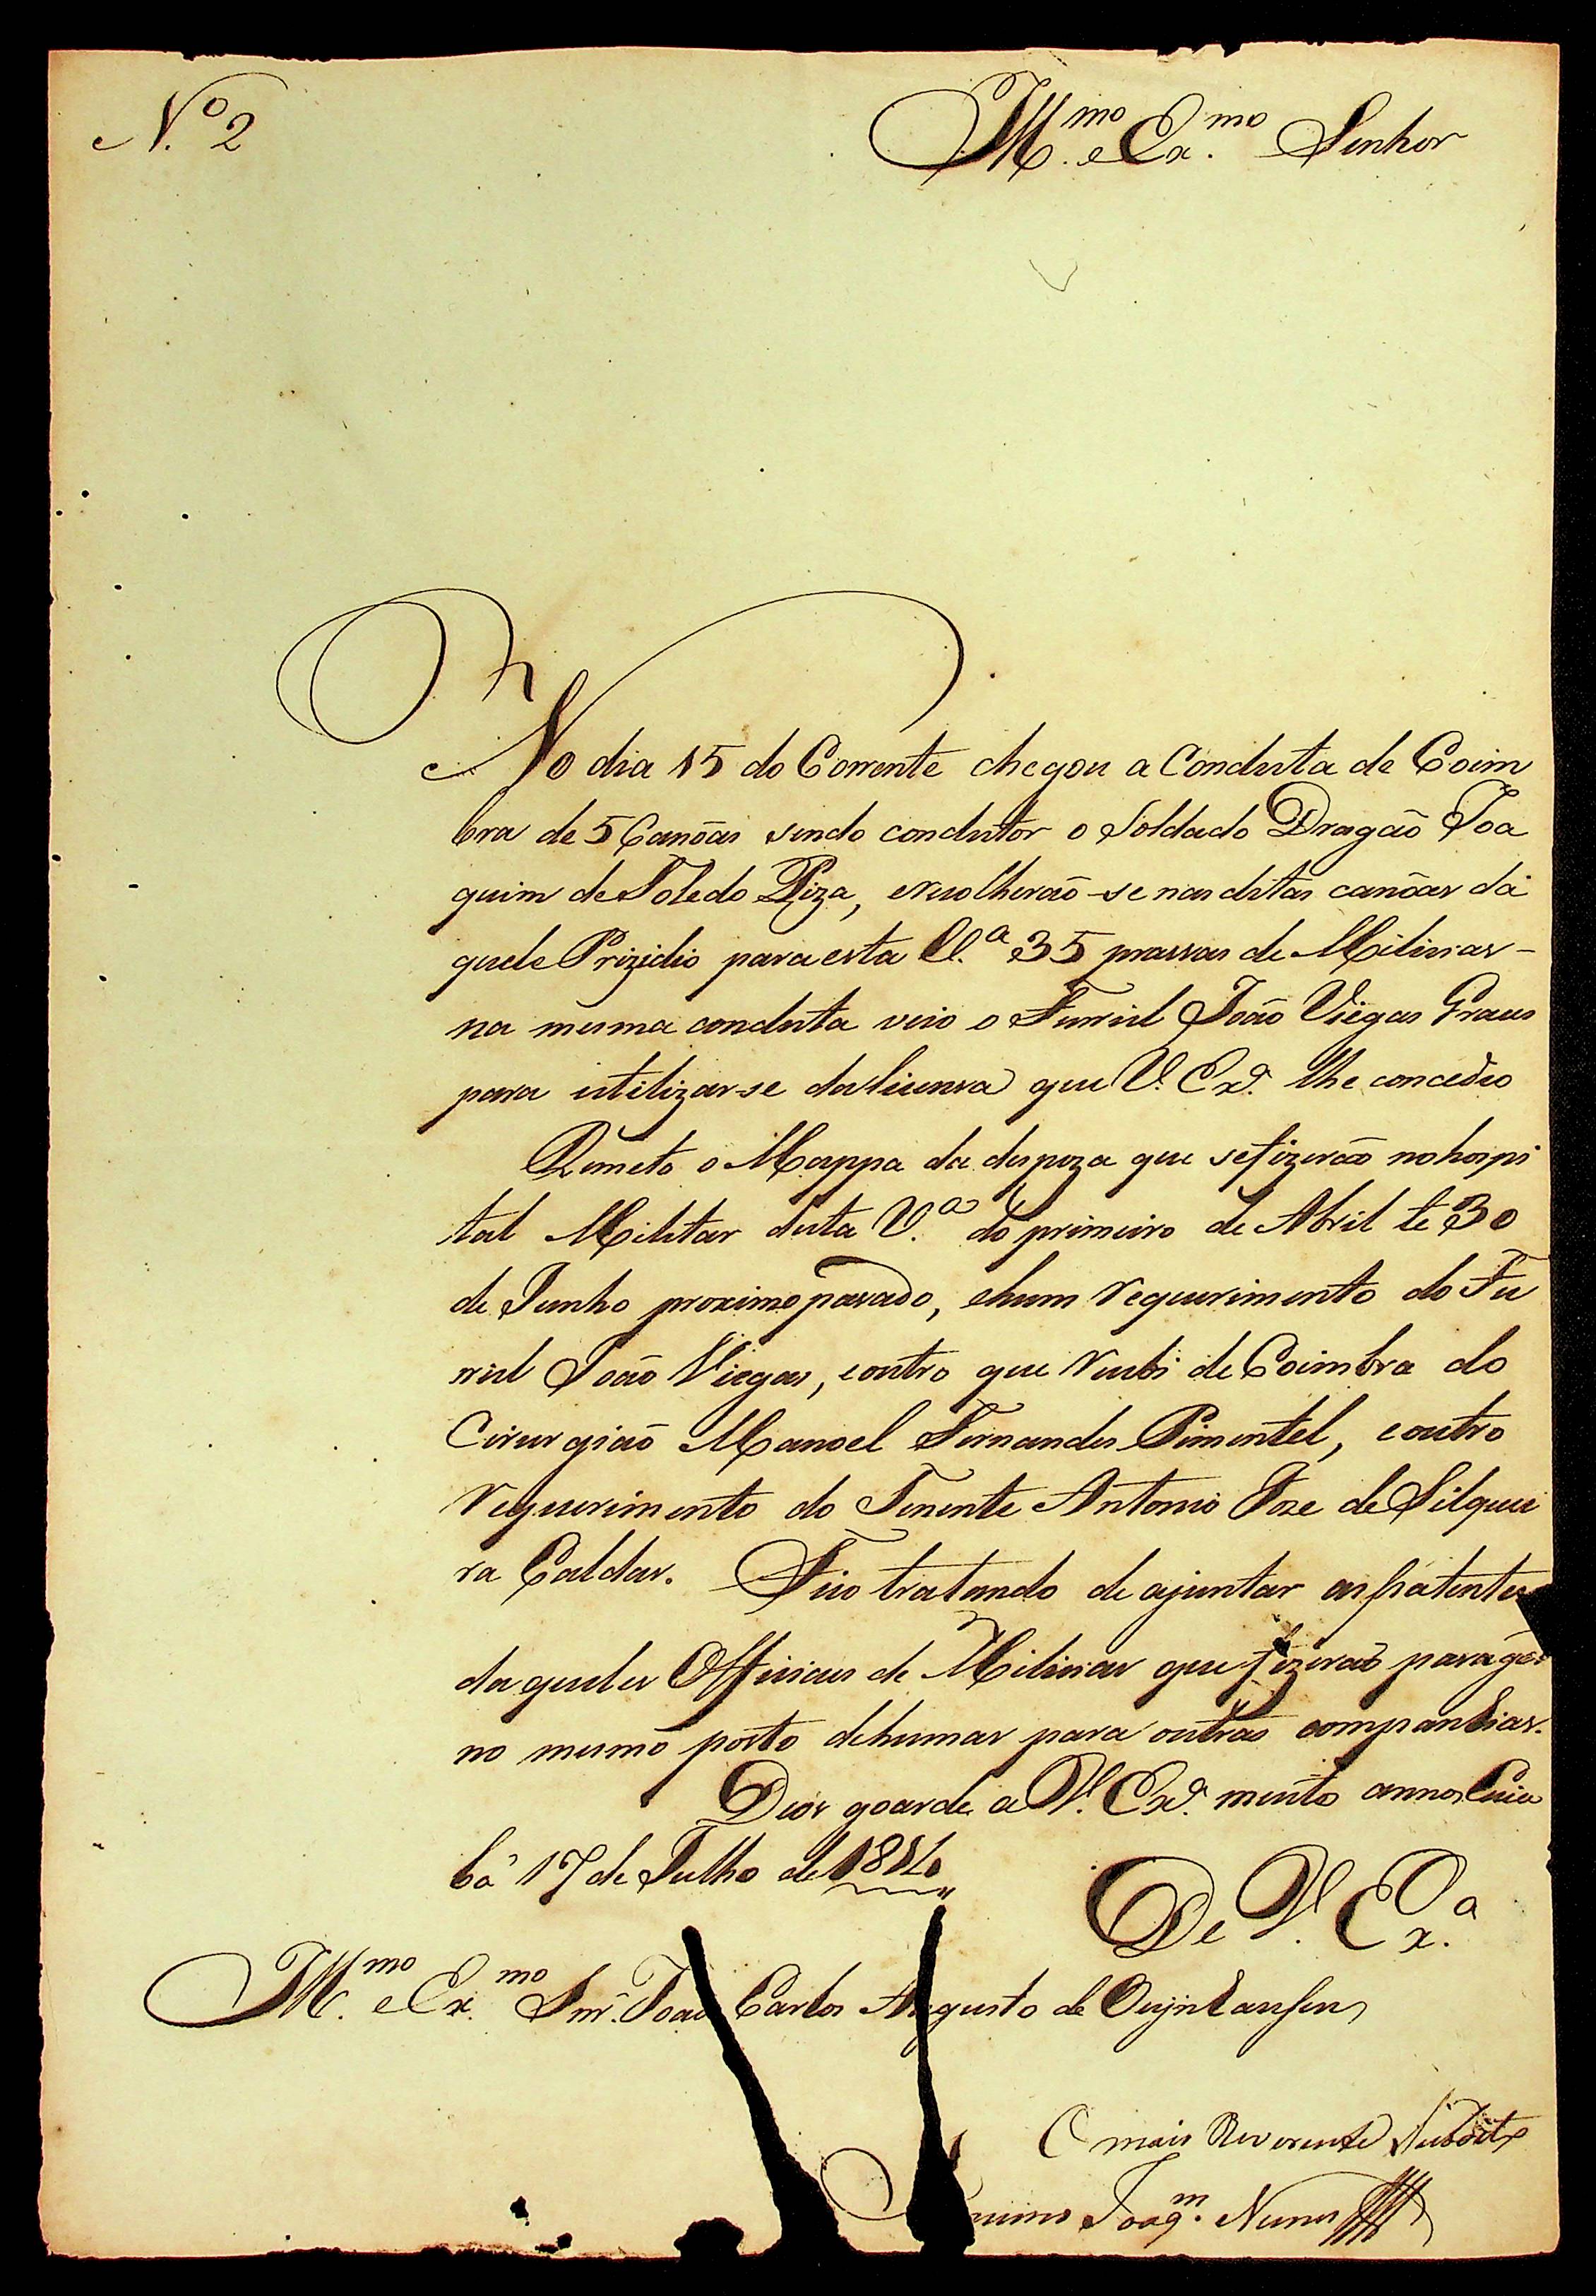 N.º 2
Ill.mo e Ex.mo Senhor
No dia 15 do Corrente chegou a Conduta de Coim
bra de 5 Canôas sendo condutor o Soldado Dragaõ Joa
quim de Toledo Piza, erecolheraõ-se nas ditas canôas da
quele Prizidio para esta V.ª 35 prassas de Milicias -
na mesma conduta veio o Furriel Joaõ Viegas
para utilizar-se da licensa que V. Exª. lhe concedeo
Remeto o Mappa da despeza que sefizeraõ no hospi
tal Militar desta V.ª do primeiro de Abril te 30
de Junho proximo pasado, ehum requerimento do Fu
rriel Joaõ Viegas, eoutro que recebi de Coimbra do
Cirurgiaõ Manoel Fernandes Pimentel, eoutro
requerimento do Tenente Antonio Joze de Silquei
ra Caldas. Fico tratando de ajuntar as patentes
daqueles Officiaes de Milicias que fizeraõ parage
no mesmo posto dehumas para outras companhias.
Deos goarde a V. Exª. muito annos Cuia
bá 17 de Julho de 1814
De V. Ex.ª
Ill.mo e Ex.mo Snr. Joaõ Carlos Augusto de Oeynhausen
O mais Reverente Subdito
Joaq.m Nunes